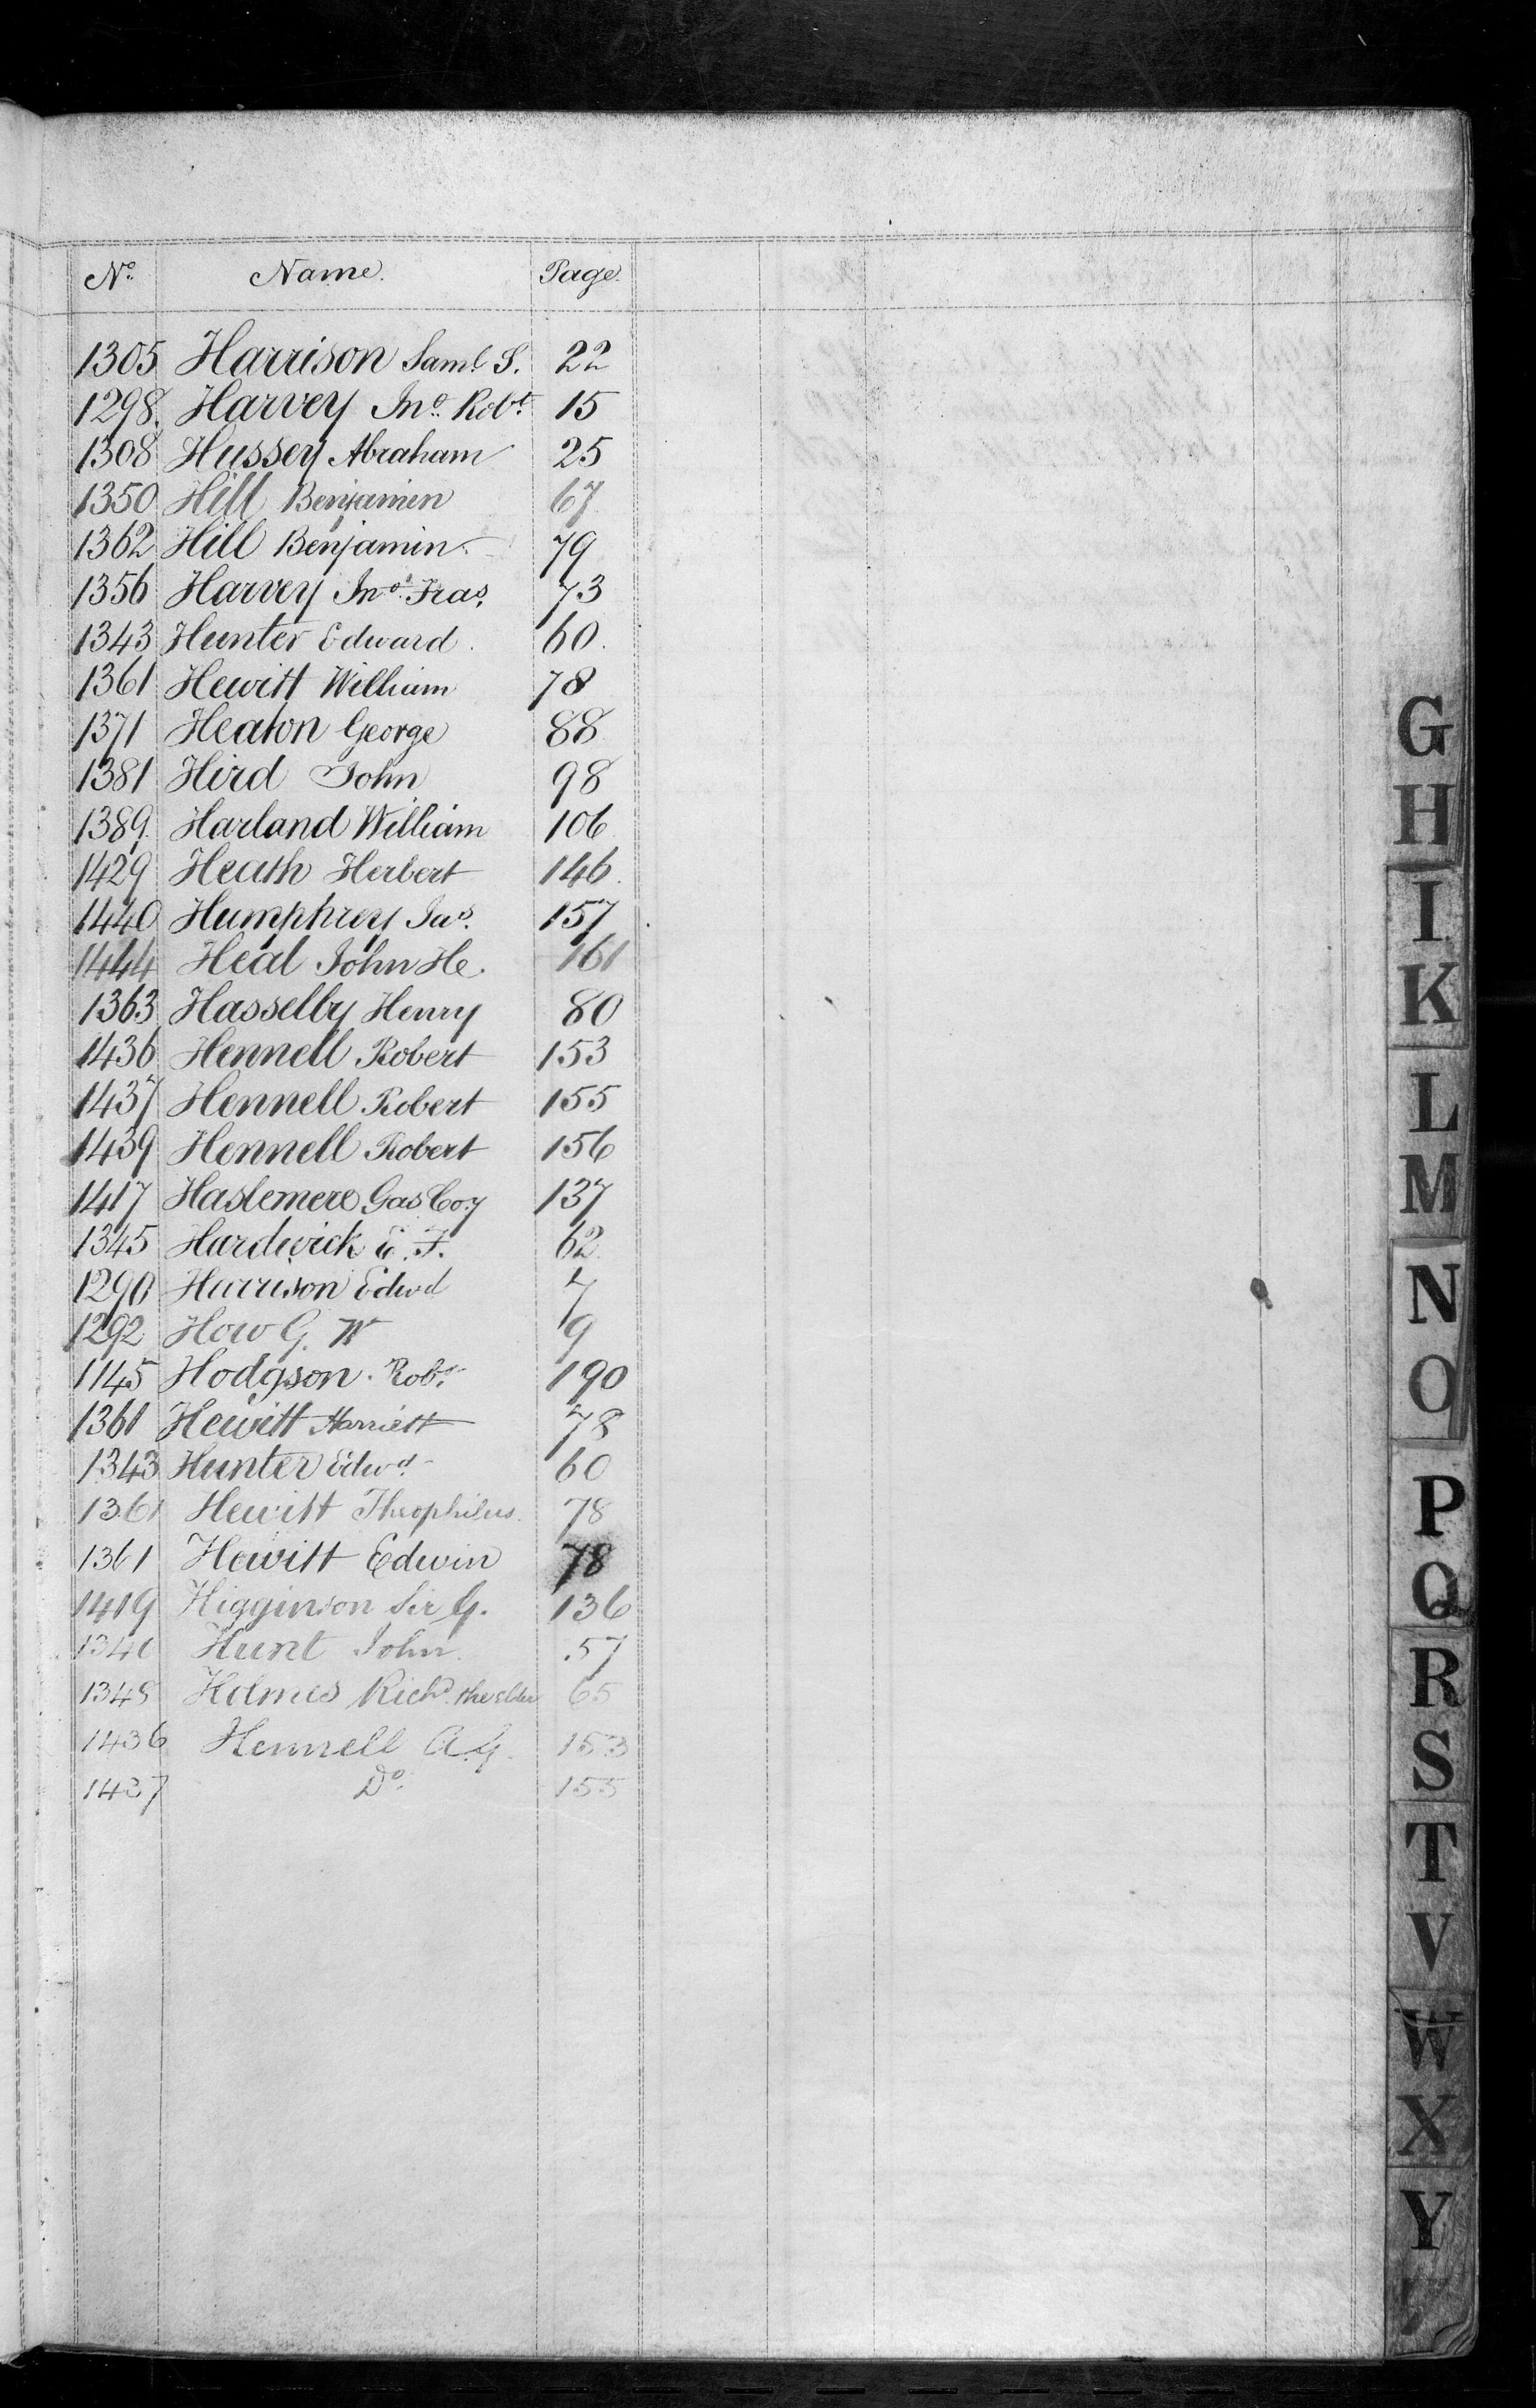 No. Name. Page.
1305 Harrison Saml. S. 22
1298. Harvey Jno. Robt. 15
1308 Hussey Abraham 25
1350 Hill Benjamin 67
1362 Hill Benjamin 79
1356 Harvey Jno. Fras. 73
1343 Hunter Edward. 60.
1361 Hewitt William 78
1371 Heaton George 88
1381 Hird John 98
1389. Harland William 106
1429 Heath Herbert 146.
1440 Humphrey Jas. 157
1444 Heal John He. 161
1363 Hasselby Henry 80
1436 Hennell Robert 153
1437 Hennell Robert 155
1439 Hennell Robert 156
1417 Haslemere Gas Coy 137
1345 Hardwick E. F. 62
1290 Harrison Edwd 7
1292 How G. W 9
1145 Hodgson. Robt. 190
1361 Hewitt Harriett 78
1343 Hunter Edwd. 60
1361 Hewitt Theophilus. 78
1361 Hewitt Edwin 78
1419 Higginson Sir G. 136
1340 Hunt John. 57
1348 Holmes Richd. the elder 65
1436 Hennell A.G. 153
1437 Do. 155
G
H
I
K
L
M
N
O
P
Q
R
S
T
V
W
X
Y